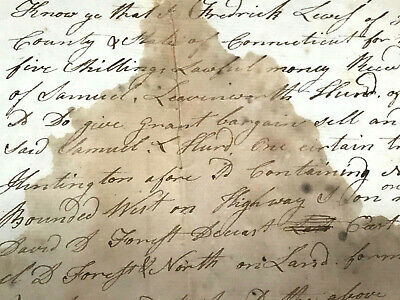 Know ye that I Fredrick Lewis of
County & State of Connecticut for
five Shillings Lawful money
of Samuel Leavinworth Hurd, of
D Do give grant bargain sell an
Said Samuel L Hurd One certain t
Huntington afore D Containing
Bounded West on Highway on
David D Forest Deceast East
el D Forest & North on Land form
above